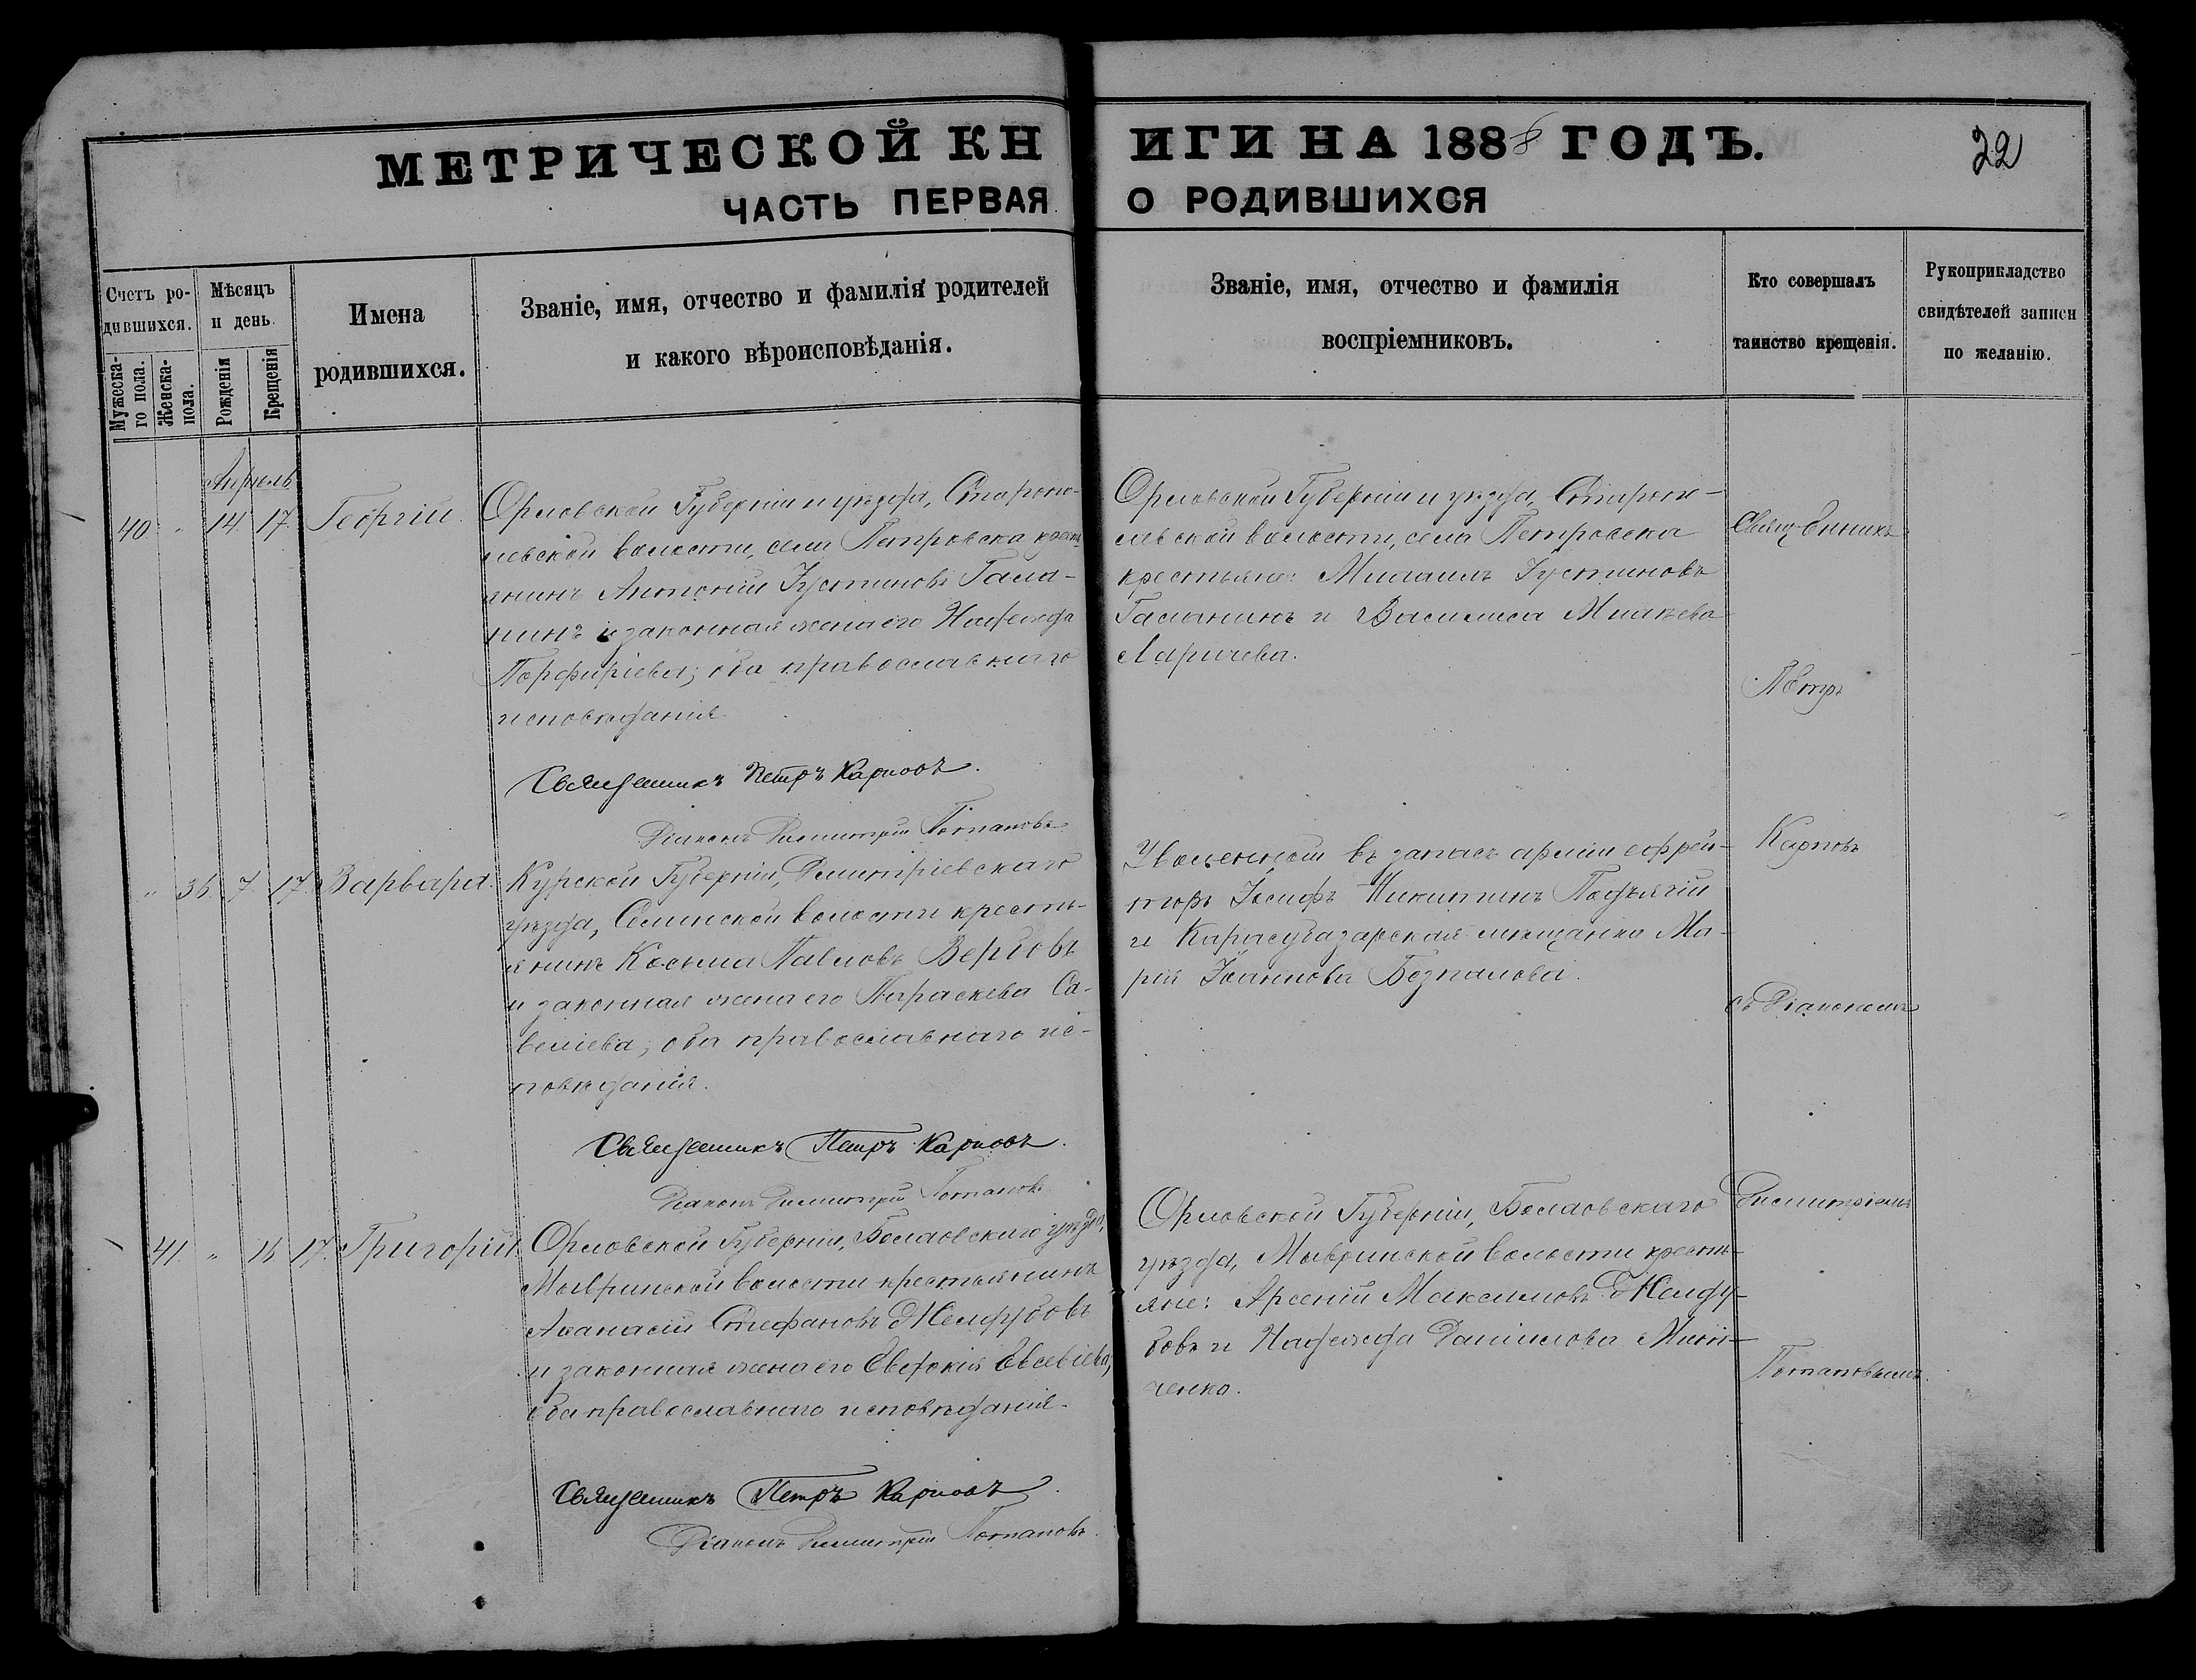 МЕТРИЧЕСКОЙ КНИГИ НА 1888 ГОДЪ.
22
ЧАСТЬ ПЕРВАЯ О РОДИВШИХСЯ
Счетъ родившихся.
Мужескаго пола.
Женска- пола.
Мѣсяцъ и день.
Рожденія
Крещенія
Имена родившихся.
Званіе, имя, отчество и фамилія родителей
и какого вѣроисповѣданія.
Званіе, имя, отчество и фамилія
воспріемниковъ.
Кто совершалъ
таинство крещенія.
Рукоприкладство
свидѣтелей записи
по желанію.
Апрель
40 " 14. 17. Георгій.
Орловской Губерніи и уѣзда,
волости, села Петровска
Антоній Іустиновъ Гала-
нинъ и законная жена его Надежда
Порфиріева; оба православнаго
исповѣданія.
Священникъ Петръ Карповъ.
Діаконъ Димитрій Потаповъ
Орловской Губерніи и уѣзда,
волости, села Петровска
крестьяне: Михаилъ Іустиновъ
Галанинъ и Василиса
Ларичева.
" 36 7. 17. Варвара.
Курской Губерніи, Димитріевскаго
уѣзда, Селинской волости кресть-
янинъ Косьма Павловъ
и законная жена его Параскева Са-
веліева; оба православнаго ис-
повѣданія.
Священникъ Петръ Карповъ.
Діаконъ Димитрій Потаповъ
Уволенный въ запасъ арміи ефрей-
торъ Іосифъ Никитинъ
и Карасубазарская мѣщанка Ма-
рія Іоаннова Безпалова.
41. " 17. Григорій.
Орловской Губерніи, Болховскаго уѣзда,
волости крестьянинъ
Аѳанасій Стефановъ
и законная жена его Евдокія Евсевіева;
оба православнаго исповѣданія.
Священникъ Петръ Карповъ.
Діаконъ Димитрій Потаповъ.
Орловской Губерніи, Болховскаго
уѣзда, волости кресть-
яне: Арсеній Максимовъ
и Надежда Даніилова
ченко.
Священникъ
Петръ
Карповъ
съ Діакономъ
Димитріемъ
Потаповымъ.